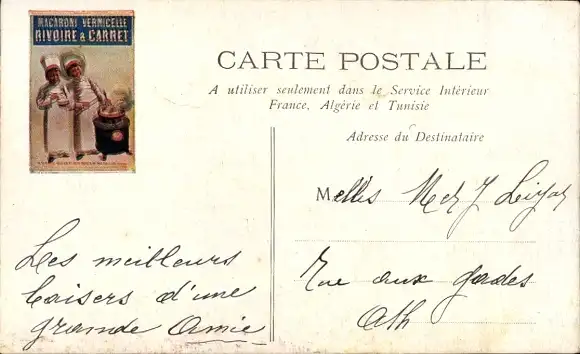 MACARONI VERMICELLE
RIVOIRE & CARRET
CARTE POSTALE
A utiliser seulement dans le Service Intérieur
France, Algérie et Tunisie
Adresse du Destinataire
Mellis M et J
Rue aux gades
Ath
Les meilleurs
baisers d'une
grande Amie